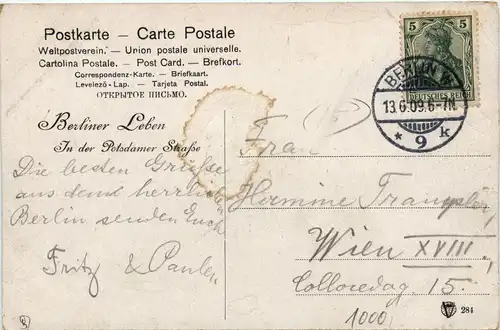 Postkarte – Carte Postale
Weltpostverein. — Union postale universelle.
Cartolina Postale. — Post Card. — Brefkort.
Correspondenz-Karte. — Briefkaart.
Levelező-Lap. — Tarjeta Postal.
ОТКРЫТОЕ ПИСЬМО.
Berliner Leben
In der Potsdamer Straße
Die besten Grüße
aus dem herrlichen
Berlin senden Euch
Fritz &
5 5
DEUTSCHES REICH
BERLIN W.
13.6.09.6-7N.
* 9 k
Frau
Hermine
Wien XVIII.,
Colloredog. 15.
1000
284
8